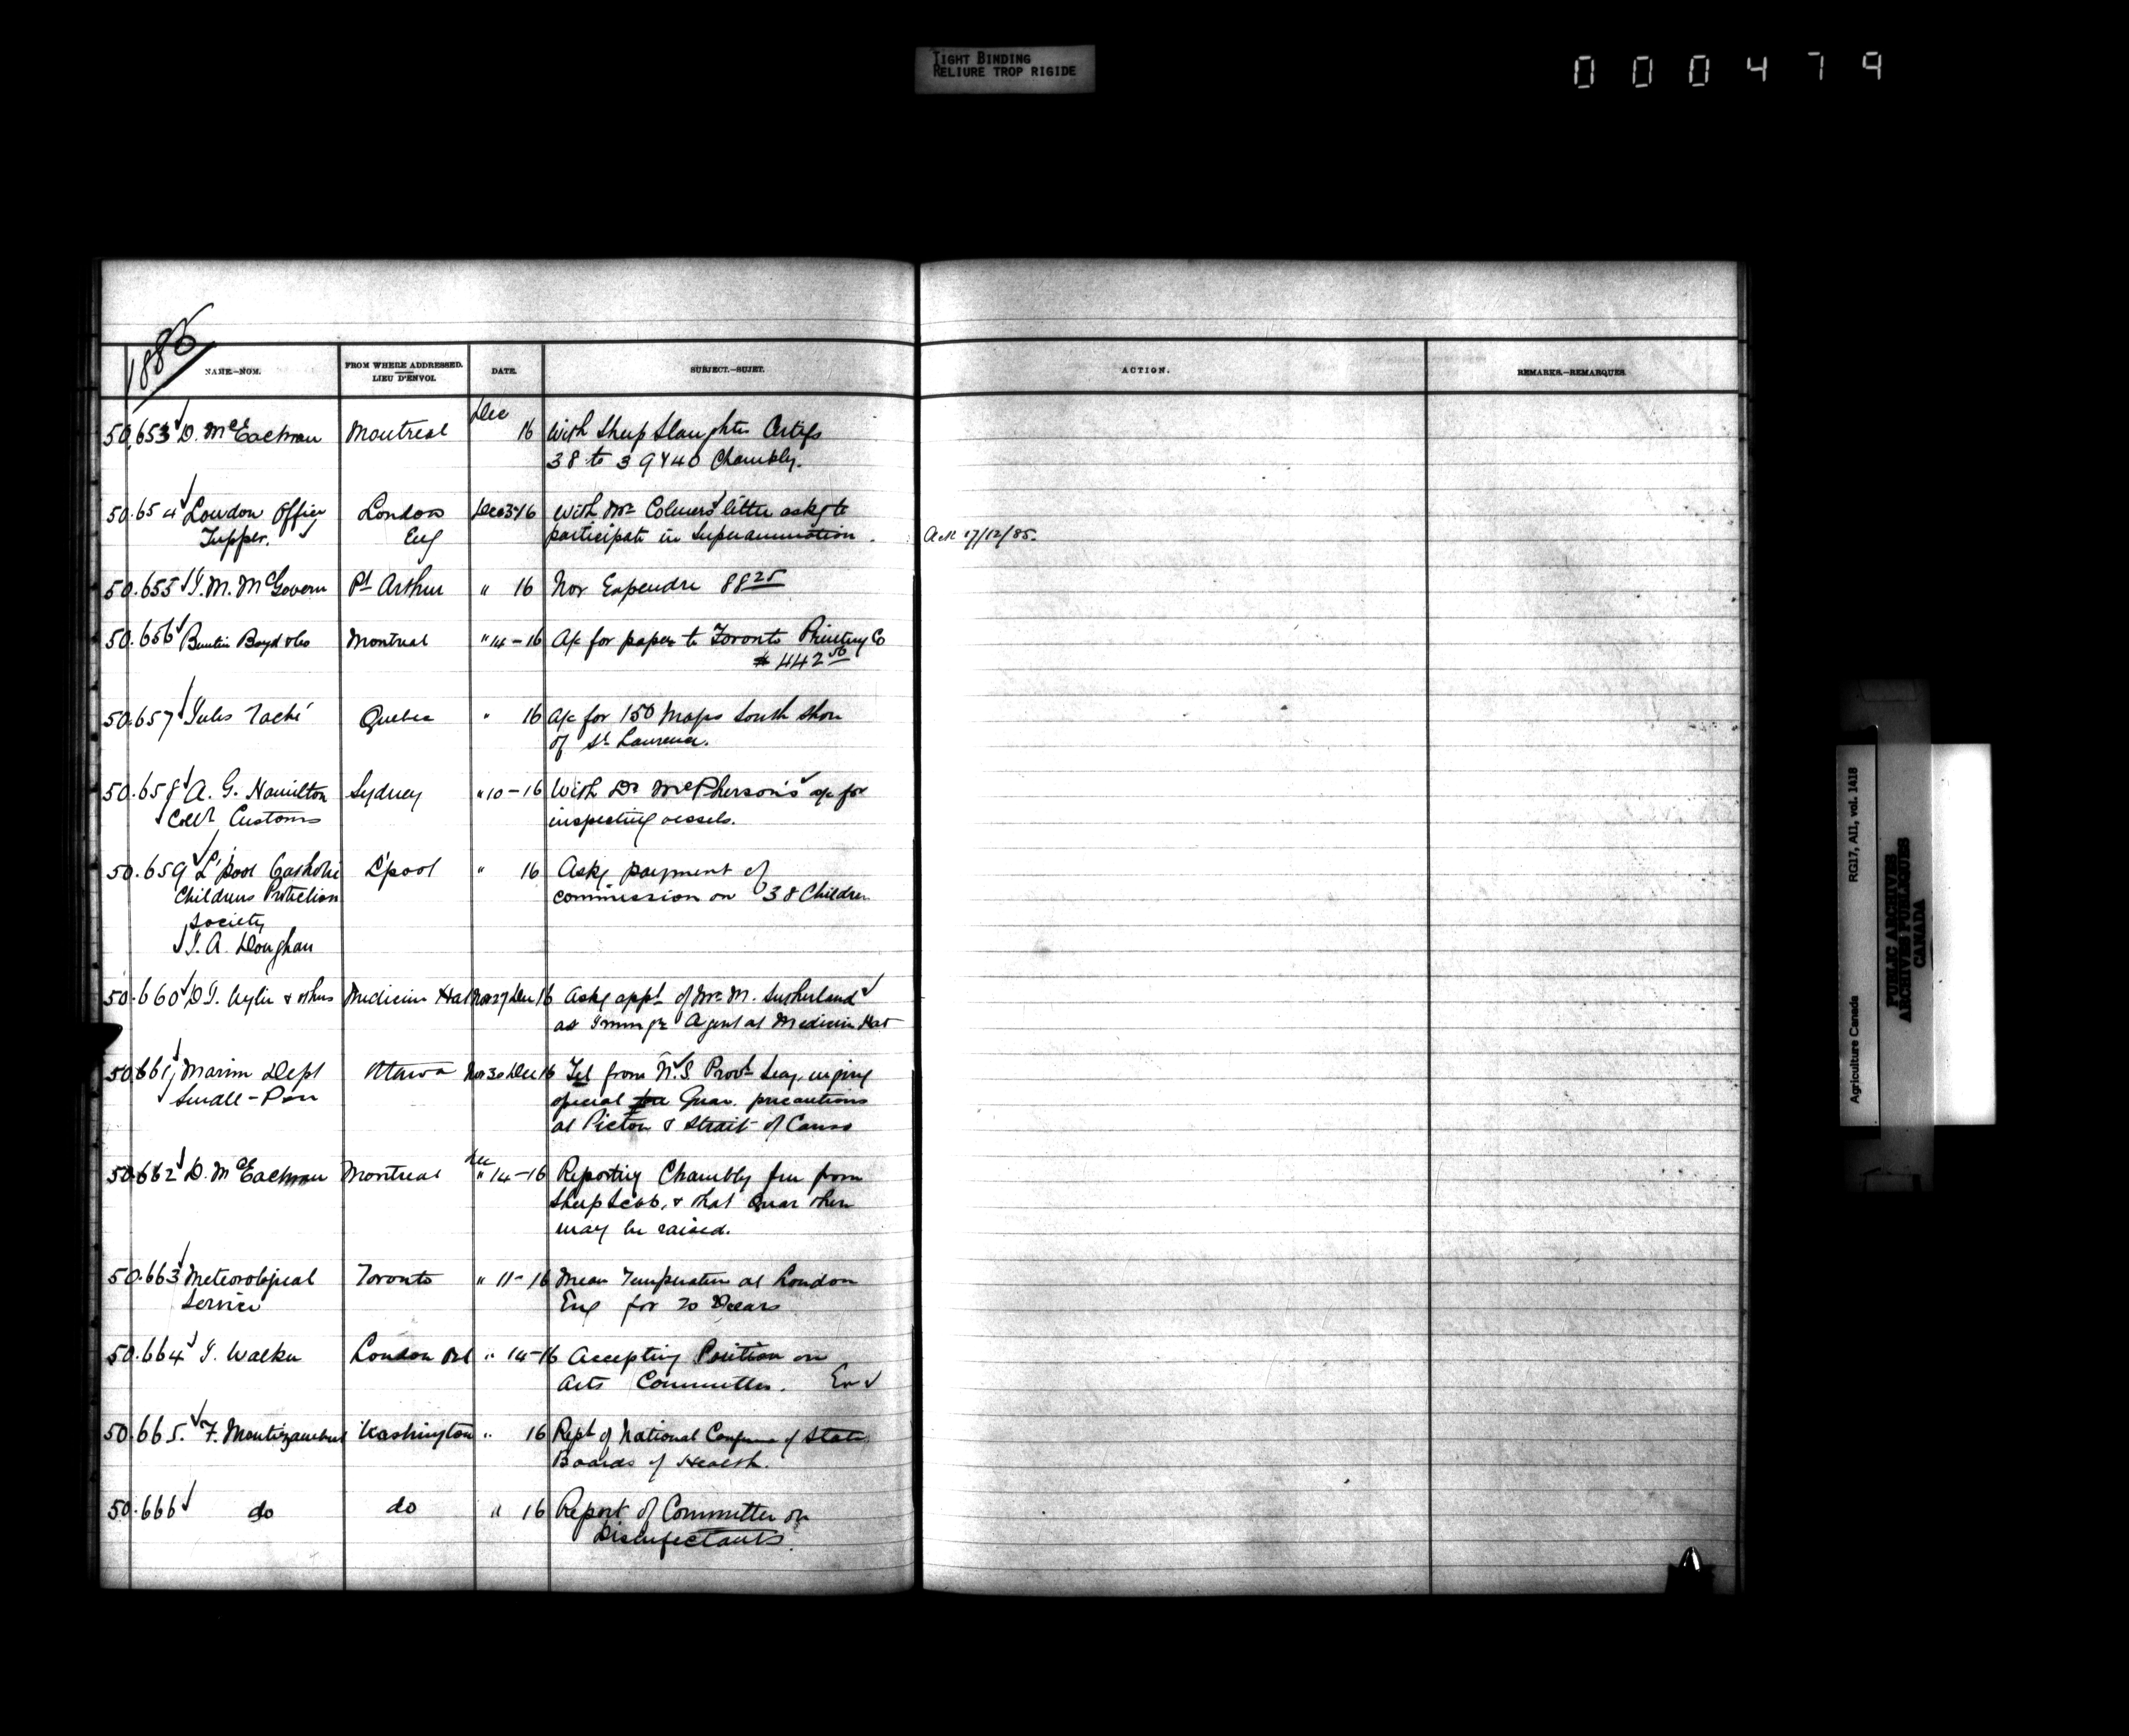 TIGHT BINDING
RELIURE TROP RIGIDE
000479
1885
NAME.–NOM.
FROM WHERE ADDRESSED.
LIEU D'ENVOI.
DATE.
SUBJECT.–SUJET.
ACTION.
REMARKS.–REMARQUES
50.653 D. McEachran Montreal Dec 16 With Sheep Slaughter Certifs
38 to 39 & 40 Chambly.
50.654 London Office London Dec 3-16 With Mr Colmers letter askg to
Tupper. Eng participate in Superannuation.
Ack 17/12/85.
50.655 J. M. McGovern Pt Arthur " 16 Nov Expendre 88 25
50.656 Buntin Boyd & Co Montreal " 14-16 A/c for paper to Toronto Printing Co
$ 442 56
50.657 Jules Taché Quebec " 16 A/c for 150 Maps South Shore
of St Laurence.
50.658 A. G. Hamilton Sydney " 10-16 With Dr McPherson's a/c for
Collr Customs inspecting vessels.
50.659 L'pool Catholic L'pool " 16 Askg payment of
Childrens Protection commission on 38 Children
Society
J. A. Doughan
50.660 D. J. Wylie & others Medicine Hat Nov 27 Dec 16 Askg appt of Mr M. Sutherland
as Immgn Agent at Medicine Hat
50.661 Marine Dept Ottawa Nov 30 Dec 16 Tel from N.S Provl Secy. urging
Small-Pox special Quar. precautions
at Pictou & Strait of Canso
50.662 D. McEachran Montreal Dec " 14-16 Reporting Chambly free from
Sheep Scab, & that Quar there
may be raised.
50.663 Meteorological Toronto " 11-16 Mean Temperature at London
Service Eng for 20 Years
50.664 J. Walker London Ont " 14-16 Accepting Position on
Arts Committee.
50.665. F. Montizambert Washington " 16 Rept of National Conference of State
Boards of Health.
50.666 do do " 16 Report of Committee on
Disinfectants.
Agriculture Canada RG17, AII, vol. 1418
PUBLIC ARCHIVES
ARCHIVES PUBLIQUES
CANADA